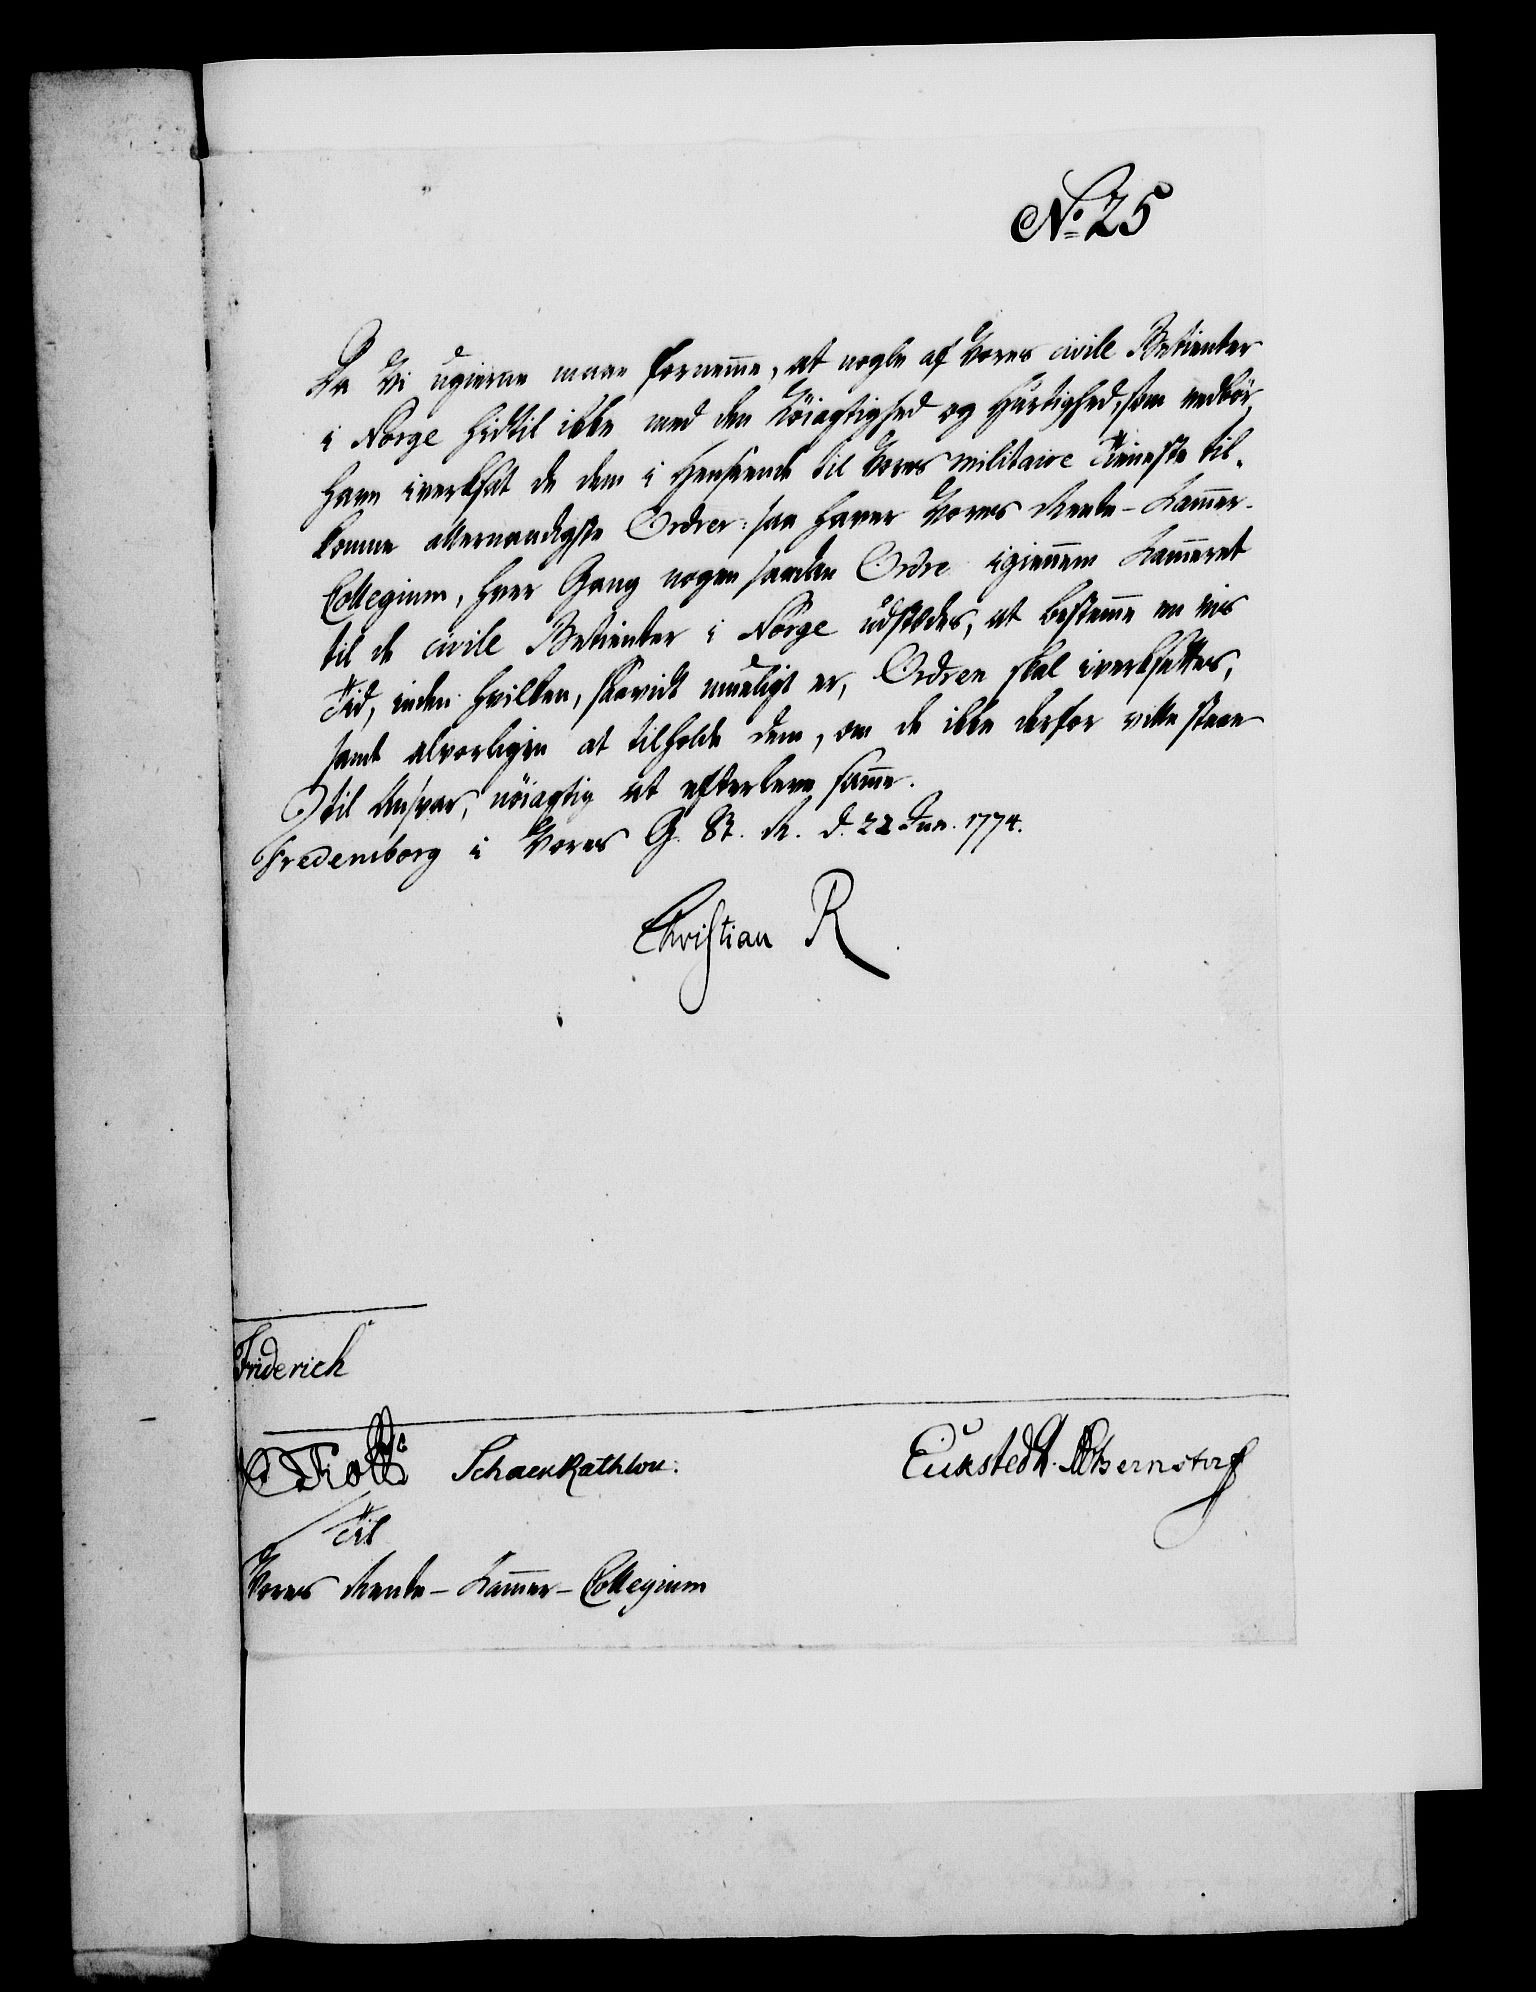 No. 25
Da Vi ugierne maae fornem̄e, at nogle af Vores civile Betienter
i Norge hidtil ikke med den Nöiagtighed og Hurtighed, som vedbör,
have iverksat de dem i Henseende til Vores militaire Tieneste til-
komne allernaadigste Ordrer: saa haver Vores Rente-Kam̄er-
Collegium, hver Gang nogen saadan Ordre igien̄em Kam̄eret
til de civile Betienter i Norge udstædes, at bestem̄e en vis
Tid, inden hvilken, saavidt mueligt er, Ordren skal iverksettes,
samt alvorligen at tilholde dem, om de ikke derfor ville staae
til Ansvar, nöiagtig at efterleve sam̄e.
Fredensborg i Vores G. St. R. d. 22 Jun. 1774.
Christian R
Friderich
Schack Rathlou:
Eickstedt. Bernstorff
Til
Vores Rente-Kam̄er-Collegium